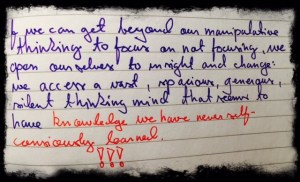 If we can get beyond our manipulative
thinking to focus on not focusing, we
open ourselves to insight and change:
we access a vast, spacious, generous,
silent thinking mind that seems to
have knowledge we have never self-
consciously learned.
!!!